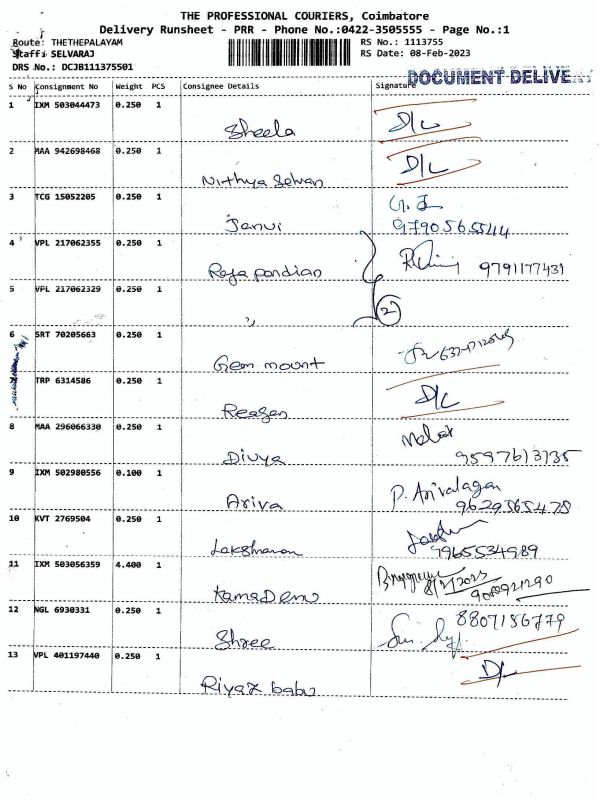 THE PROFESSIONAL COURIERS, Coimbatore
Delivery Runsheet - PRR - Phone No.:0422-3505555 - Page No.:1
Route: THETHEPALAYAM RS No.: 1113755
Staff: SELVARAJ RS Date: 08-Feb-2023
DRS No.: DCJB111375501
DOCUMENT DELIVE
S No Consignment No Weight PCS Consignee Details Signature
1 IXM 503044473 0.250 1
Sheela D/L
2 MAA 942698468 0.250 1
Nithya Selvan D/L
3 TCG 15052205 0.250 1
Janvi 9790565544
4 VPL 217062355 0.250 1
Raja pandian 9791177431
5 VPL 217062329 0.250 1
,, 2
6 SRT 70205663 0.250 1
Gem mount
7 TRP 6314586 0.250 1
Reagan D/L
8 MAA 296066330 0.250 1
Divya 9597613735
9 IXM 502980556 0.100 1
Ariva P. Arivalagan
9629565478
10 KVT 2769504 0.250 1
Lakshmanan 9965534989
11 IXM 503056359 4.400 1
KamaDenu 8/2/2023
12 NGL 6930331 0.250 1
Shree 8807156779
13 VPL 401197440 0.250 1
Riyaz babu D/L